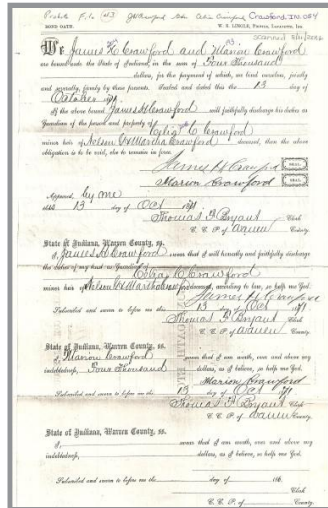 Probate File 43 JH Crawford Gdn Celia Crawford Crawford.IN.054
BOND OATH.
We James H. Crawford and Marion Crawford
are bound unto the State of Indiana, in the sum of Four Thousand
dollars, for the payment of which, we bind ourselves, jointly
and severally, firmly by these presents. Sealed and dated this the 13 day of
October
If the above bound James H Crawford will faithfully discharge his duties as
Guardian of the person and property of C Crawford
minor heir of Nelson & Martha Crawford deceased, then the above
obligation is to be void, else to remain in force.
James H Crawford SEAL.
Marion Crawford SEAL.
Approved, by me
this 13 day of Oct
Thomas F Bryant Clerk
C. C. P. of Warren County.
State of Indiana, Warren County, ss.
I, James H Crawford swear that I will honestly and faithfully discharge
the duties of my trust as Guardian of C Crawford
minor heir of Nelson & Martha Crawford deceased, according to law, so help me God.
James H Crawford
Subscribed and sworn to before me this 13 day of Oct
Thomas F Bryant Clerk
C. C. P. of Warren County.
State of Indiana, Warren County, ss.
I, Marion Crawford swear that I am worth, over and above my
indebtedness, Four Thousand dollars, as I believe, so help me God.
Marion Crawford
Subscribed and sworn to before me this 13 day of Oct
Thomas F Bryant Clerk
C. C. P. of Warren County.
State of Indiana, Warren County, ss.
I, swear that I am worth, over and above my
indebtedness, dollars, as I believe, so help me God.
Subscribed and sworn to before me the day of 186
Clerk
C. C. P. of County.